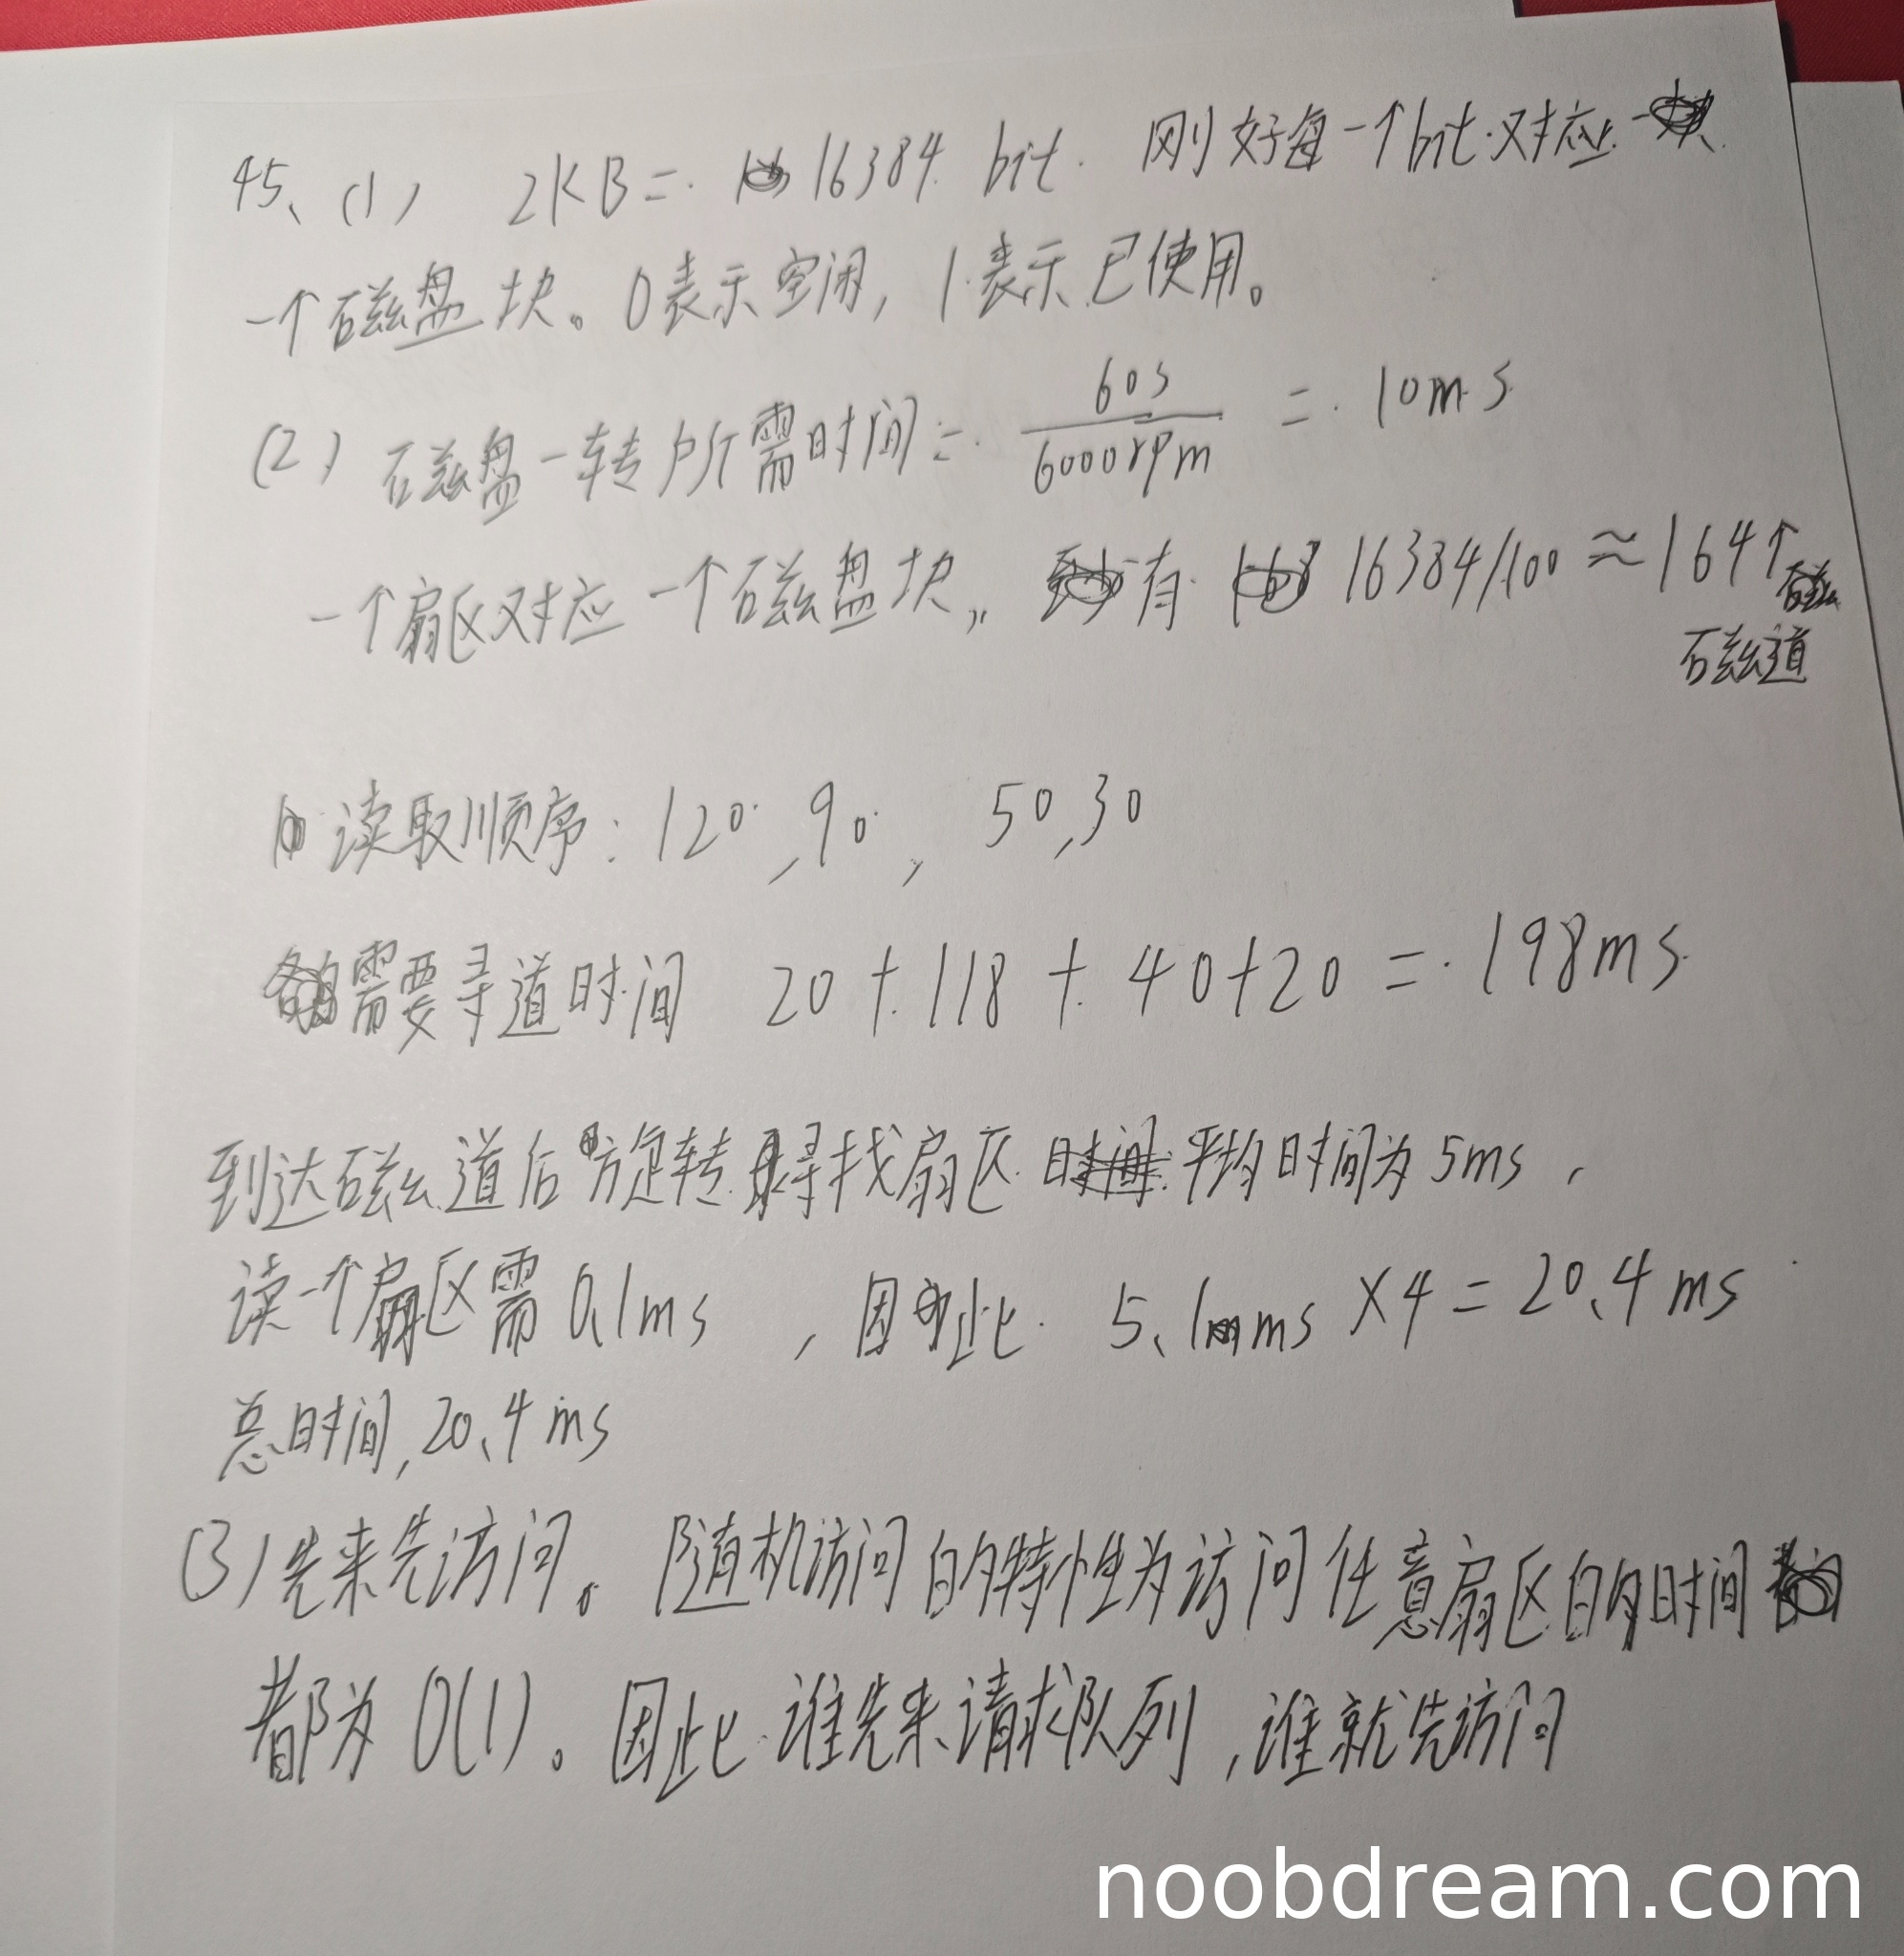 45、(1) 2KB = 16384 bit. 刚好每一个bit对应
一个磁盘块。0表示空闲，1表示已使用。
(2) 磁盘一转所需时间 = 60s / 6000rpm = 10ms
一个扇区对应一个磁盘块，有 16384/100 ≈ 164个
磁道
读取顺序：120，90，50,30
需要寻道时间 20 + 118 + 40+20 = 198ms
到达磁道后旋转寻找扇区 平均时间为5ms，
读一个扇区需0.1ms，因此 5.1ms ×4 = 20.4ms
总时间,20.4ms
(3) 先来先访问。随机访问的特性为访问任意扇区的时间
都为O(1)。因此谁先来请求队列,谁就先访问
noobdream.com